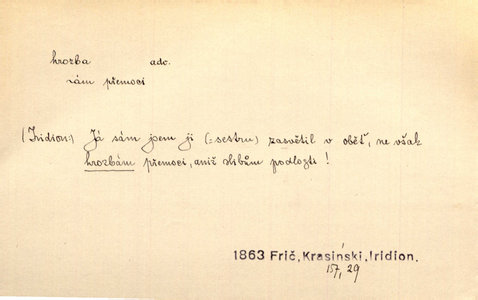 hrozba adc.
zám přemoci
(Iridion:) Já sám jsem ji (= sestru) zasvětil v oběť, ne však
hrozbám přemoci, aniž slibům podlozti!
1863 Frič, Krasiński, Iridion.
157, 29